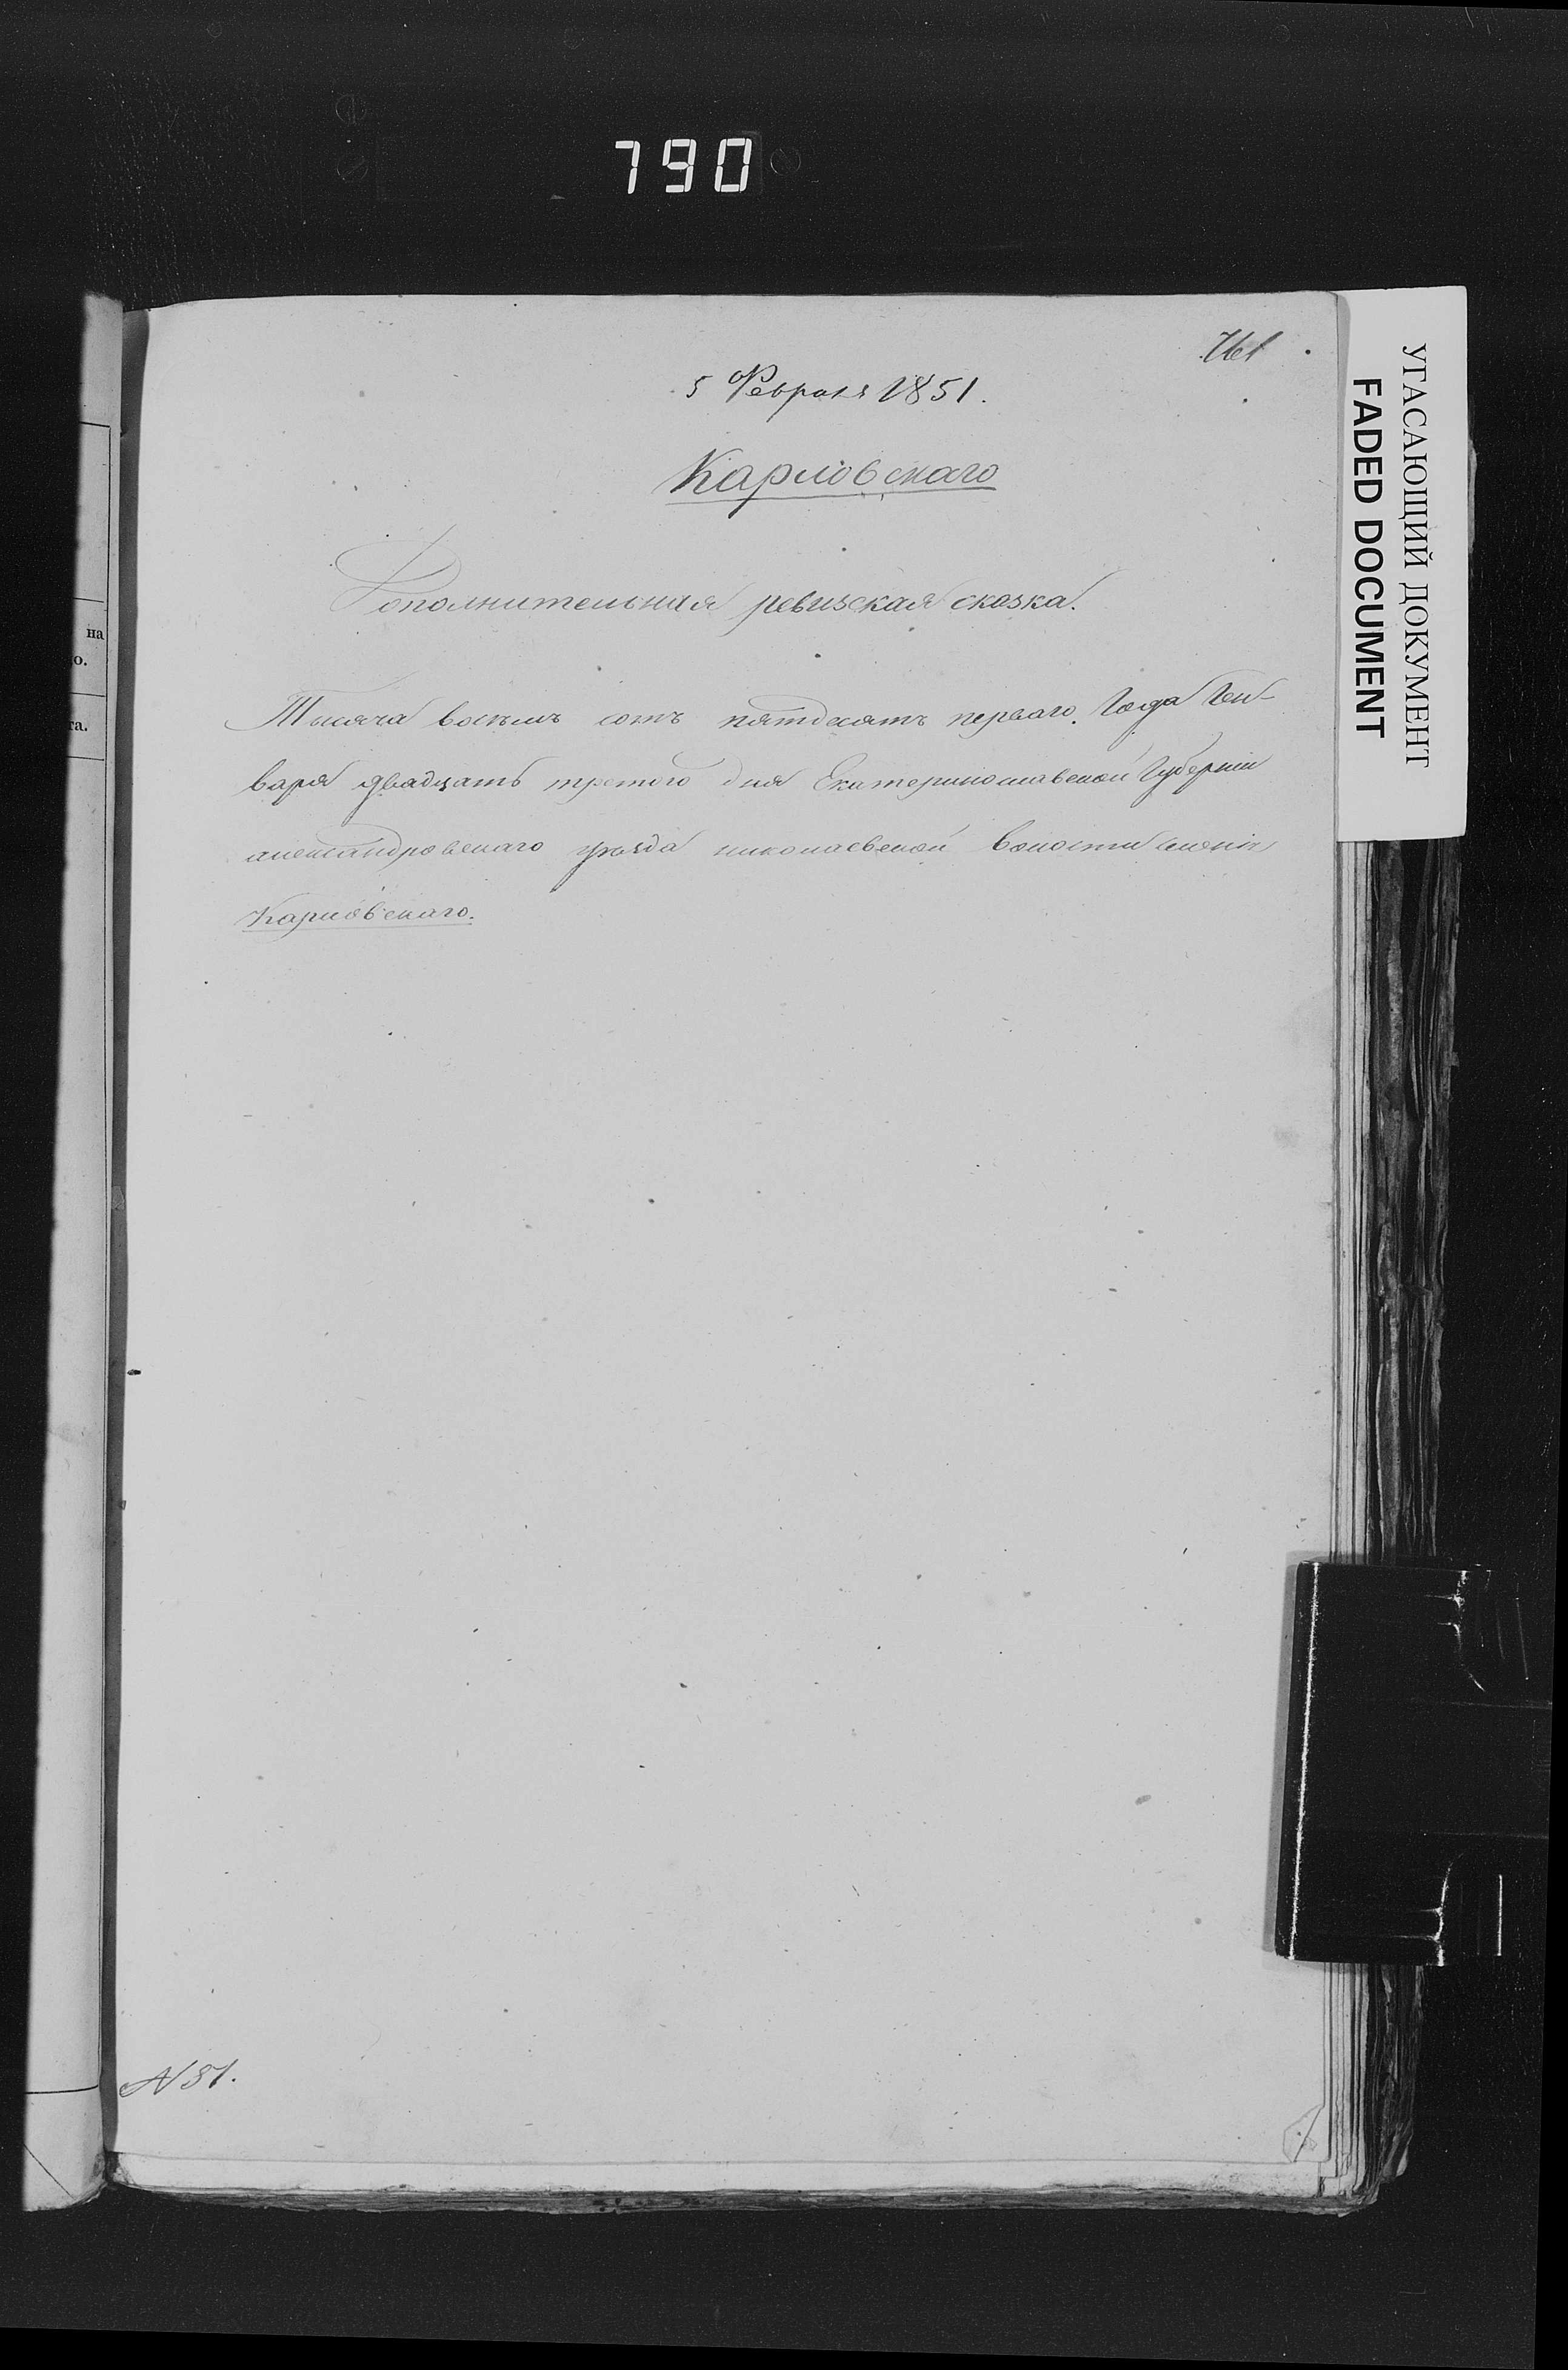 790
761
5 Февраля 1851.
Карловскаго
Дополнительная ревизская сказка.
Тысяча восемь сотъ пятдесятъ перваго Года Ген-
варя двадцать третого дня Екатеринославской Губерніи
александровскаго уѣзда николаевской волости Селенія
Карловскаго.
N 31.
УГАСАЮЩИЙ ДОКУМЕНТ
FADED DOCUMENT
на
о.
та.